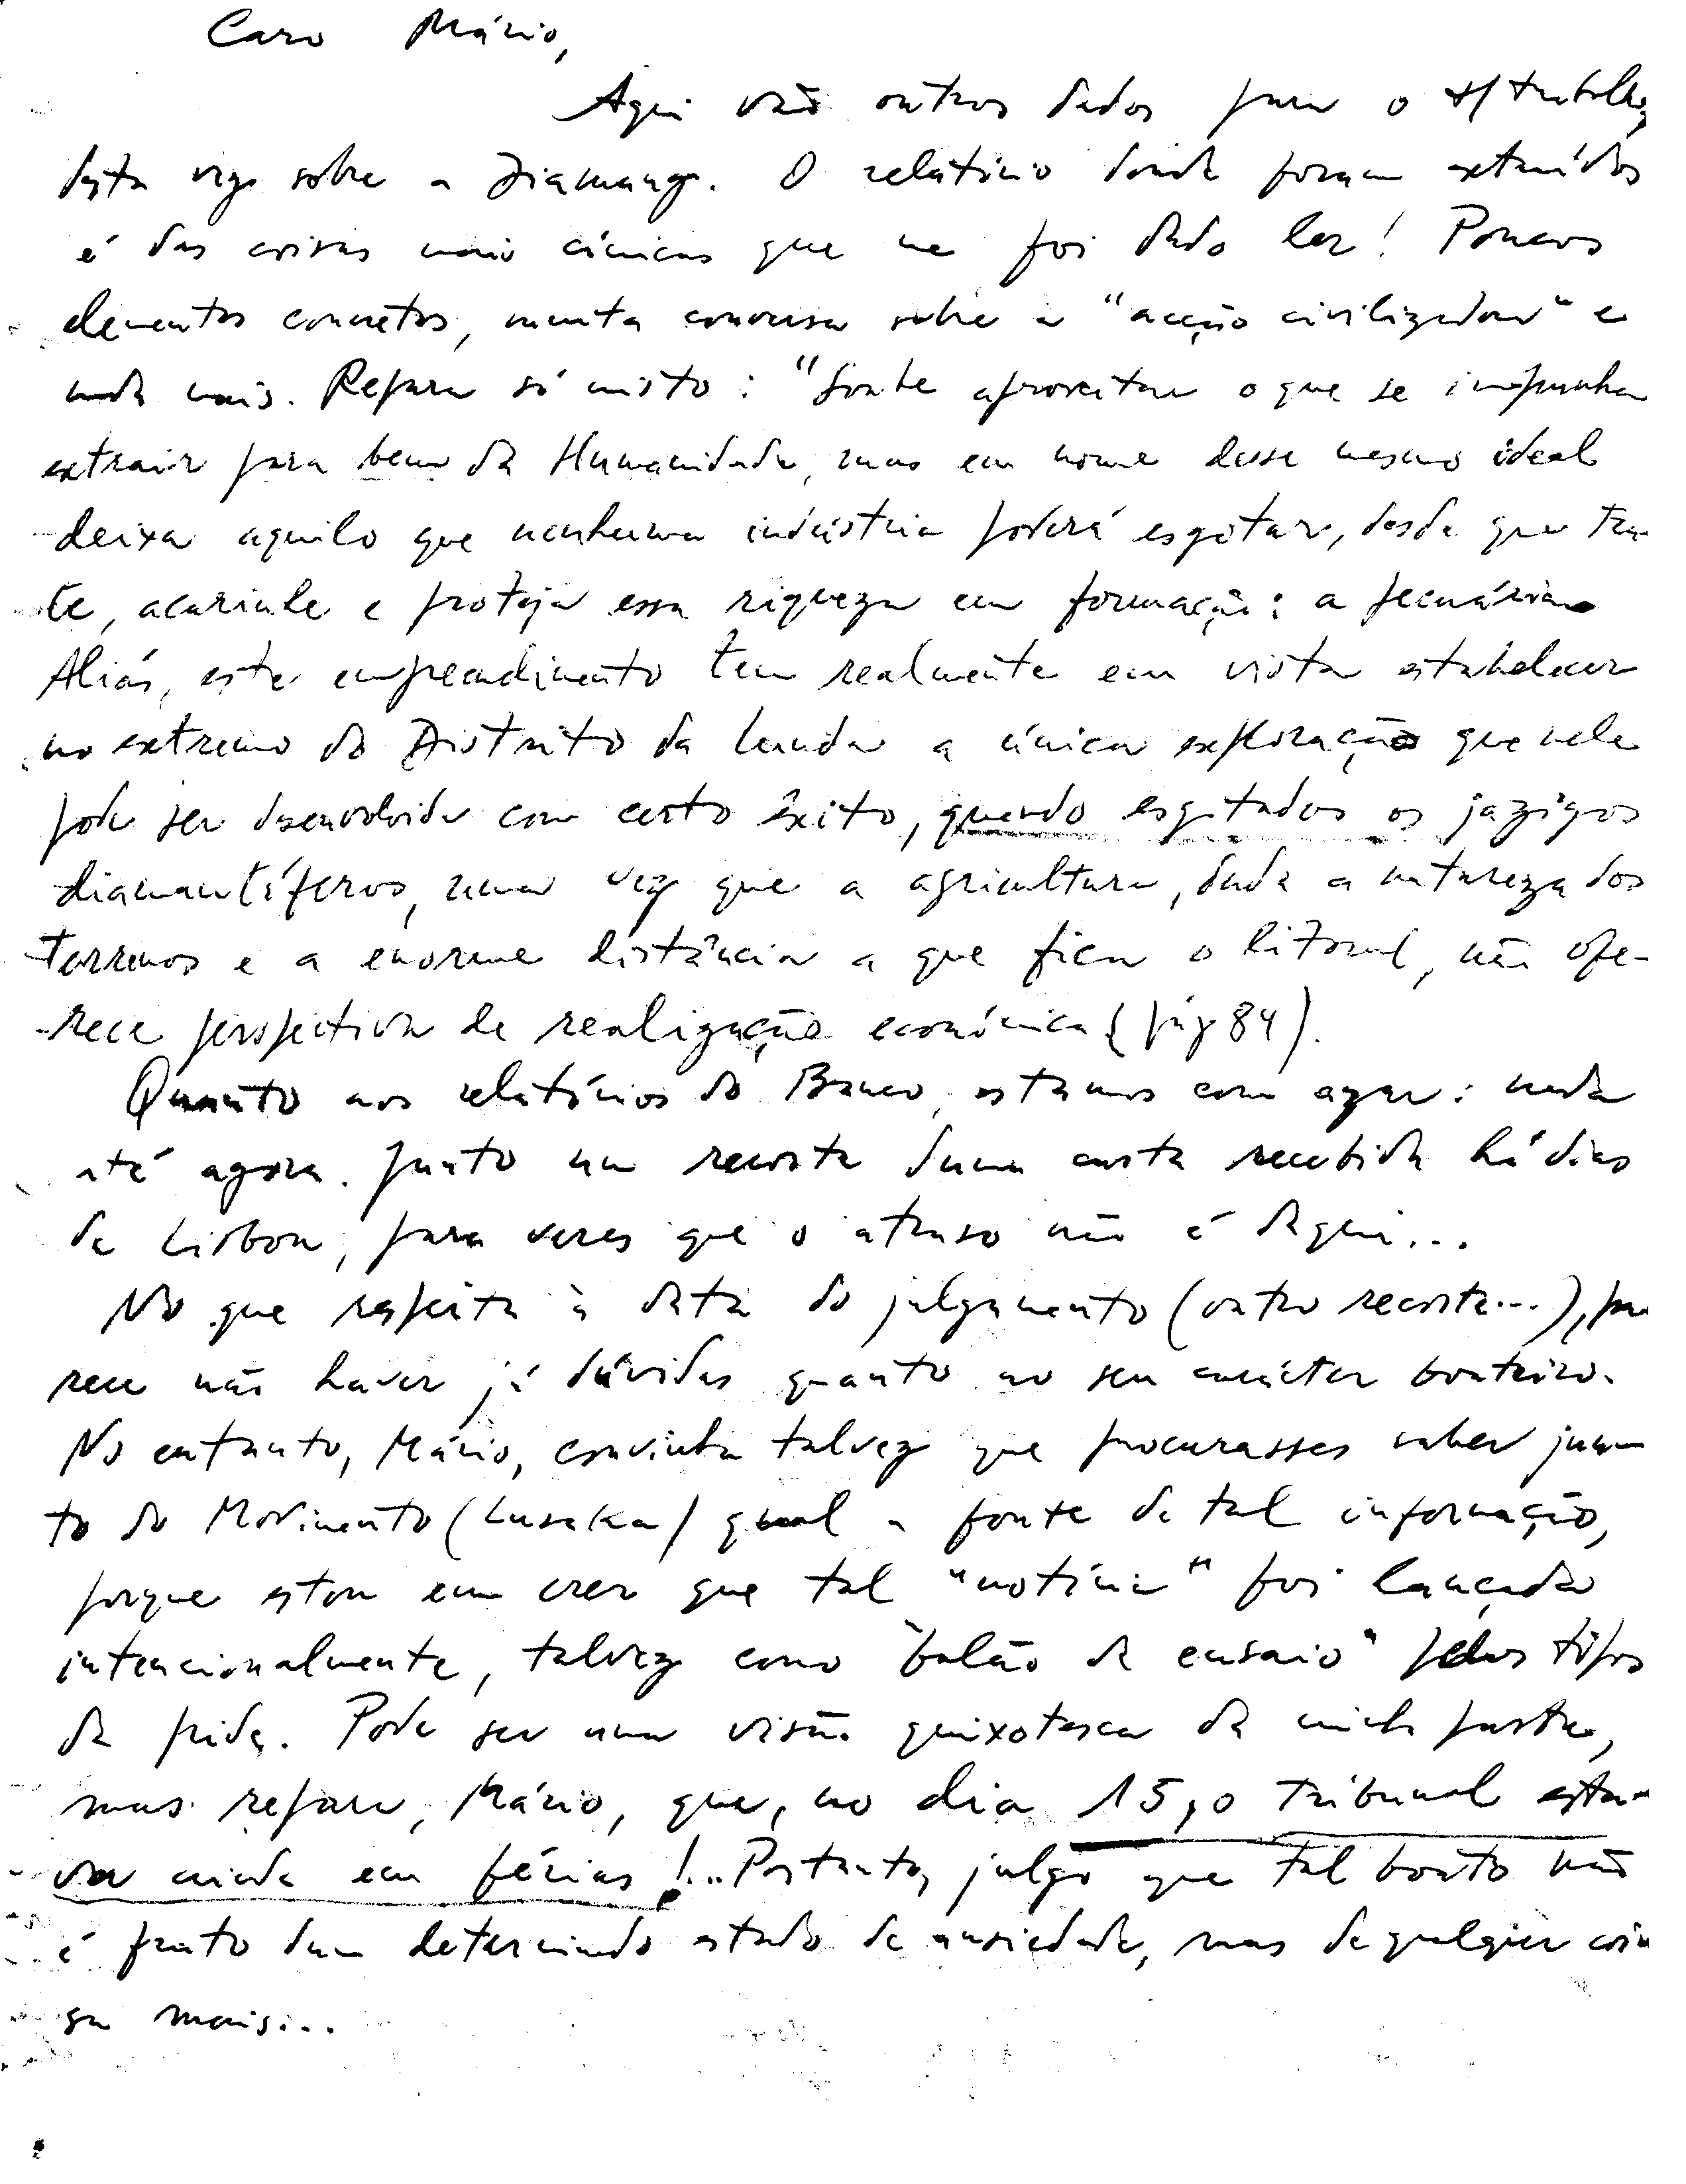 Caro Mário,
Aqui vão outros dados para o t/ trabalho,
desta vez sobre a Diamang. O relatório donde foram extraídos
é das coisas mais cínicas que me foi dado ler! Poucos
elementos concretos, muita conversa sobre a "acção civilizadora" e
nada mais. Repara só nisto: "Soube aproveitar o que se impunha
extrair para bem da Humanidade, mas em nome desse mesmo ideal
deixa aquilo que nenhuma indústria poderá esgotar, desde que tra-
te, acarinhe e proteja essa riqueza em formação: a pecuária.
Aliás, este empreendimento tem realmente em vista estabelecer
no extremo do Distrito da Lunda a única exploração que nele
pode ser desenvolvida com certo êxito, quando esgotados os jazigos
diamantíferos, uma vez que a agricultura, dada a natureza dos
terrenos e a enorme distância a que fica o litoral, não ofe-
rece perspectiva de realização económica (pág 84).
Quanto aos relatórios do Banco, estamos com azar: nada
até agora. Junto um recorte duma carta recebida há dias
de Lisboa, para veres que o atraso não é daqui...
No que respeita à data do julgamento (outro recorte...), pa
rece não haver já dúvidas quanto ao seu carácter boateiro.
No entanto, Mário, convinha talvez que procurasses saber jun-
to do Movimento (Lusaka) qual a fonte de tal informação,
porque estou em crer que tal "notícia" foi lançada
intencionalmente, talvez como "balão de ensaio" pelos tipos
da pide. Pode ser uma visão quixotesca da minha parte,
mas repara, Mário, que, no dia 15, o Tribunal esta-
va ainda em férias!... Portanto, julgo que tal boato não
é fruto dum determinado estado de ansiedade, mas de qualquer coi
sa mais...